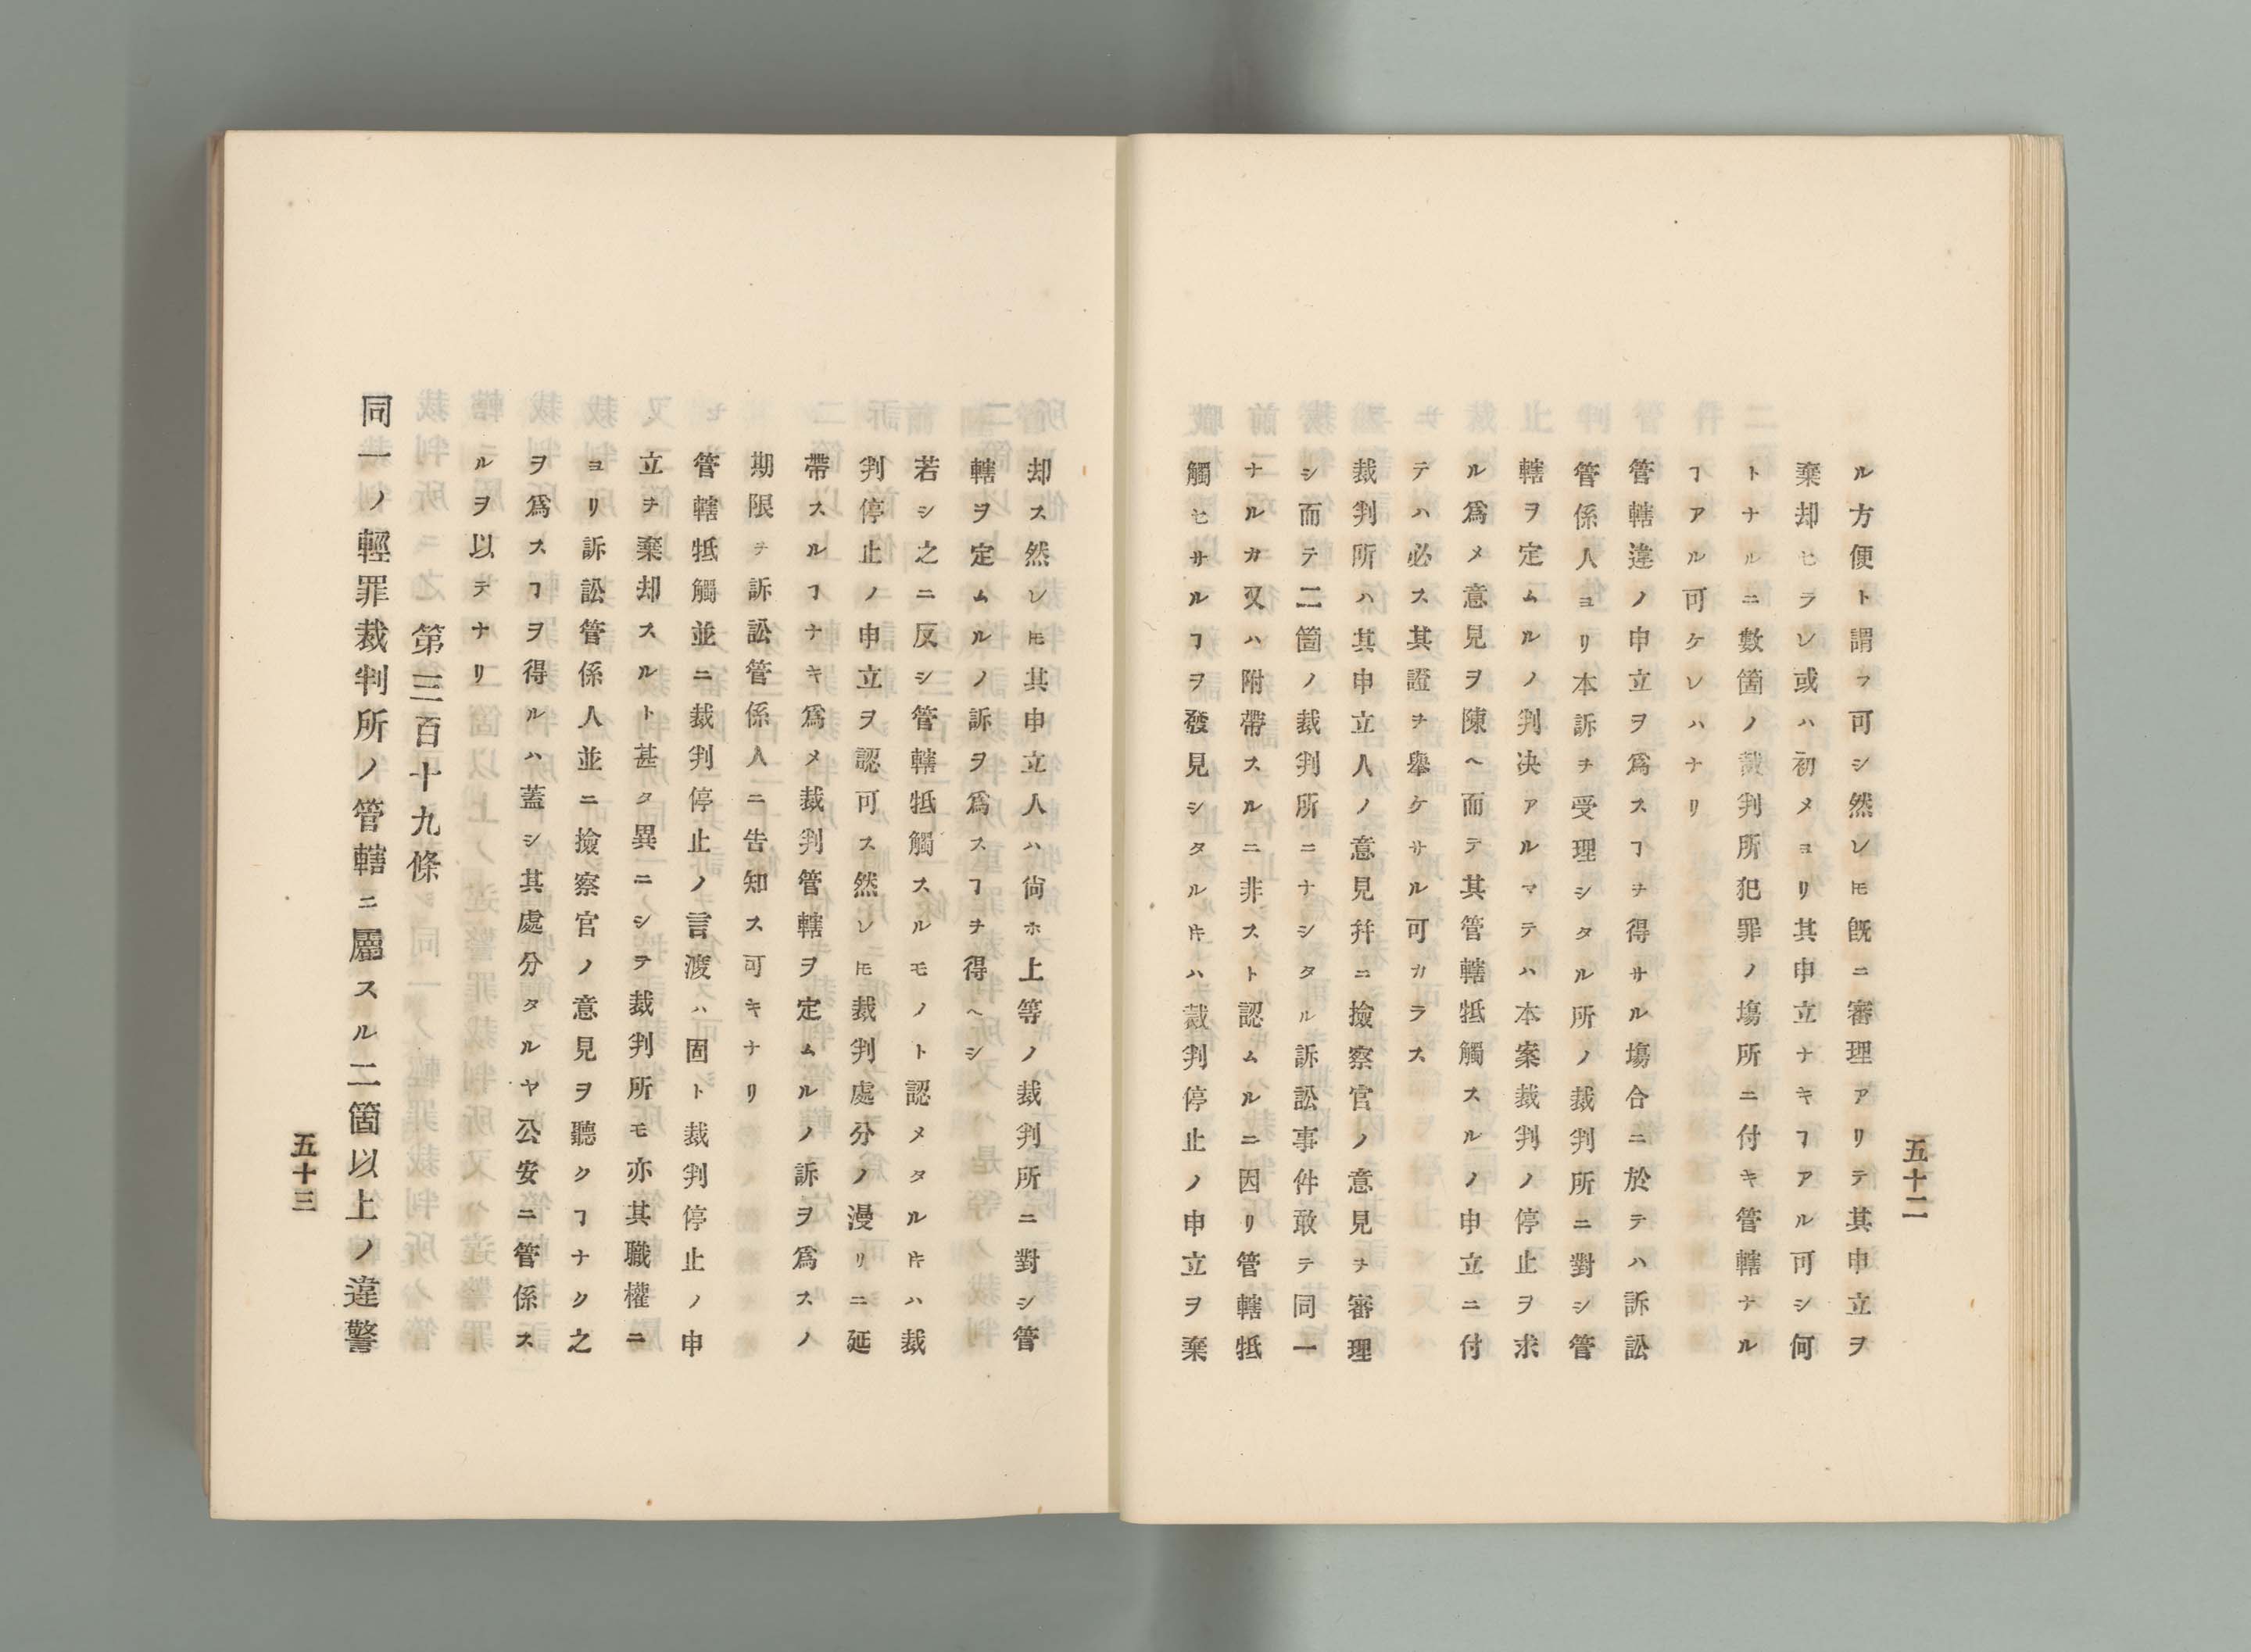 五十二
ル方便ト謂フ可シ然レ𪜈既ニ審理アリテ其申立ヲ
棄却セラレ或ハ初メヨリ其申立ナキヿアル可シ何
トナルニ數箇ノ裁判所犯罪ノ塲所ニ付キ管轄ナル
ヿアル可ケレハナリ
管轄違ノ申立ヲ爲スヿヲ得サル塲合ニ於テハ訴訟
管係人ヨリ本訴ヲ受理シタル所ノ裁判所ニ對シ管
轄ヲ定ムルノ判决アルマテハ本案裁判ノ停止ヲ求
ル爲メ意見ヲ陳ヘ而テ其管轄牴觸スルノ申立ニ付
テハ必ス其證ヲ舉ケサル可カラス
裁判所ハ其申立人ノ意見幷ニ撿察官ノ意見ヲ審理
シ而テ二箇ノ裁判所ニナシタル訴訟事件敢テ同一
ナルカ又ハ附帶スルニ非スト認ムルニ因リ管轄牴
觸セサルヿヲ發見シタル𪜈ハ裁判停止ノ申立ヲ棄
却ス然レ𪜈其申立人ハ尙ホ上等ノ裁判所ニ對シ管
轄ヲ定ムルノ訴ヲ爲スヿヲ得ヘシ
若シ之ニ反シ管轄牴觸スルモノト認メタル𪜈ハ裁
判停止ノ申立ヲ認可ス然レ𪜈裁判處分ノ漫リニ延
帶スルヿナキ爲メ裁判管轄ヲ定ムルノ訴ヲ爲スノ
期限ヲ訴訟管係人ニ告知ス可キナリ
管轄牴觸並ニ裁判停止ノ言渡ハ固ト裁判停止ノ申
立ヲ棄却スルト甚タ異ニシテ裁判所モ亦其職權ニ
ヨリ訴訟管係人並ニ撿察官ノ意見ヲ聽クヿナク之
ヲ爲スヿヲ得ルハ蓋シ其處分タルヤ公安ニ管係ス
ルヲ以テナリ
第三百十九條
同一ノ輕罪裁判所ノ管轄ニ屬スル二箇以上ノ違警
五十三